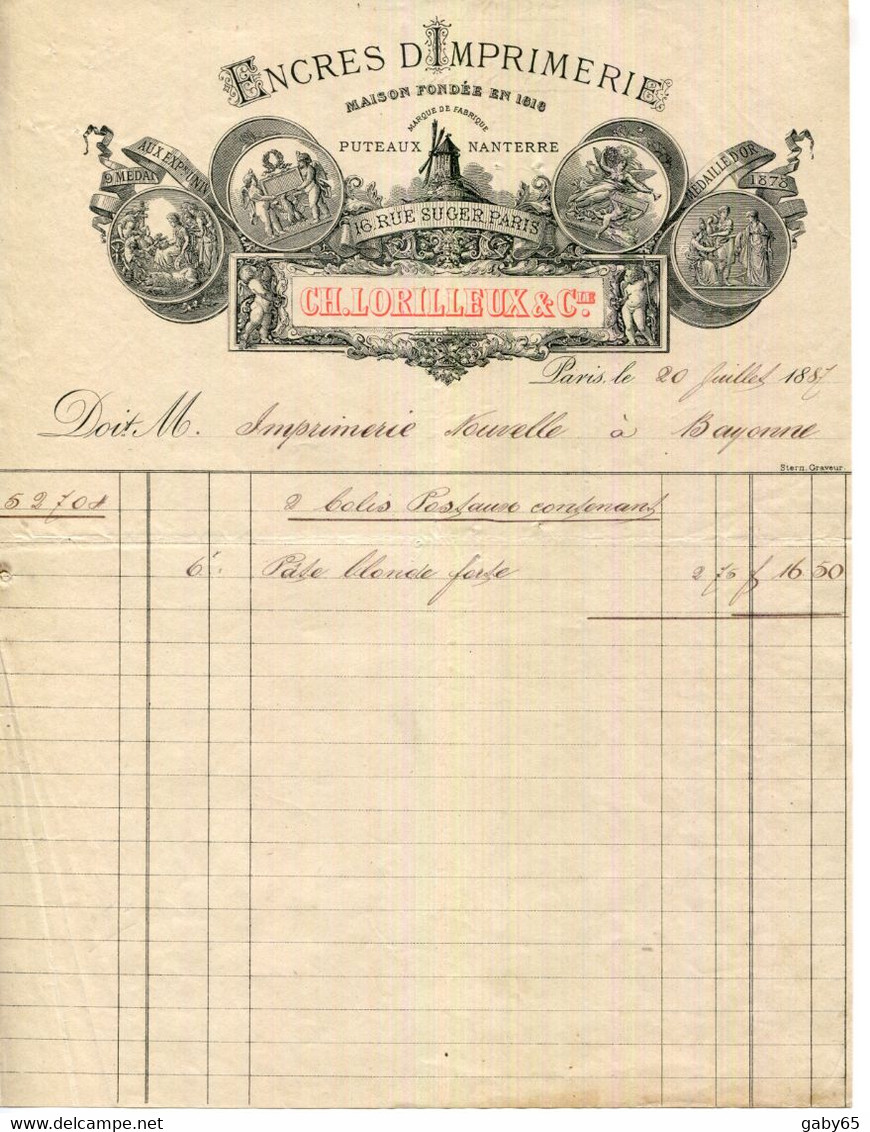 ENCRES D'IMPRIMERIE
MAISON FONDÉE EN 1818
MARQUE DE FABRIQUE
PUTEAUX NANTERRE
9 MEDAI
AUX EXPns UNIV
MEDAILLE D'OR
1878
16. RUE SUGER. PARIS
CH. LORILLEUX & CIE.
Paris, le 20 Juillet 1887
Doit M. Imprimerie Nouvelle à Bayonne
Stern, Graveur.
52708 2 Colis Postaux contenant
6 Pâte blonde forte 2 75 f 16 50
gaby65